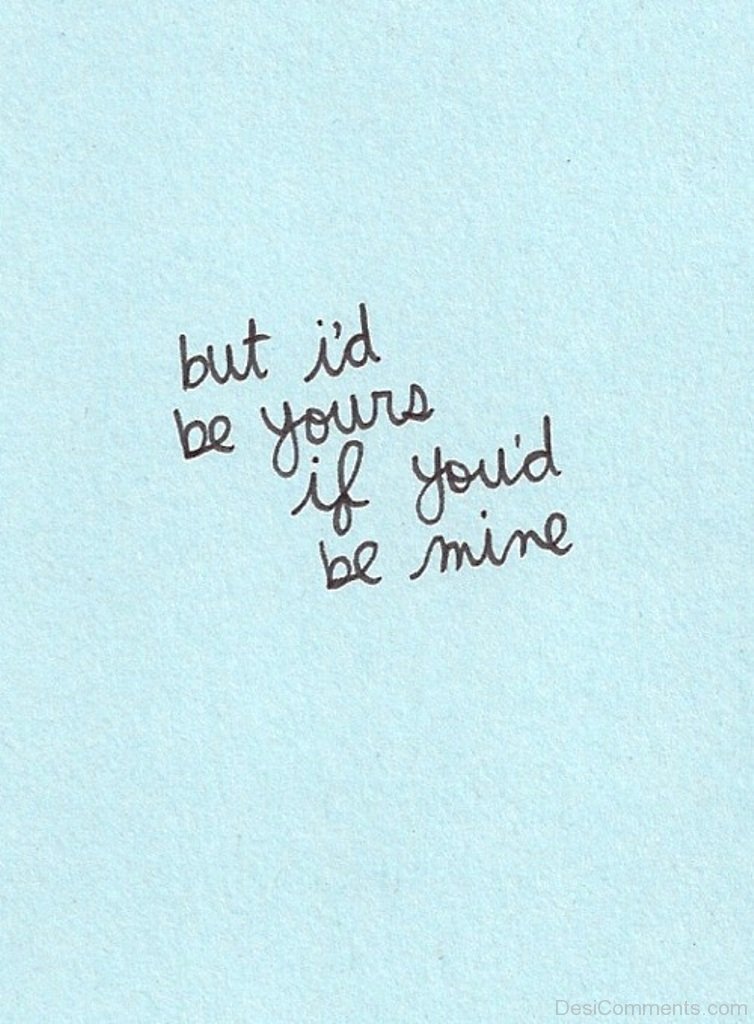 but i'd
be yours
if you'd
be mine
DesiComments.com